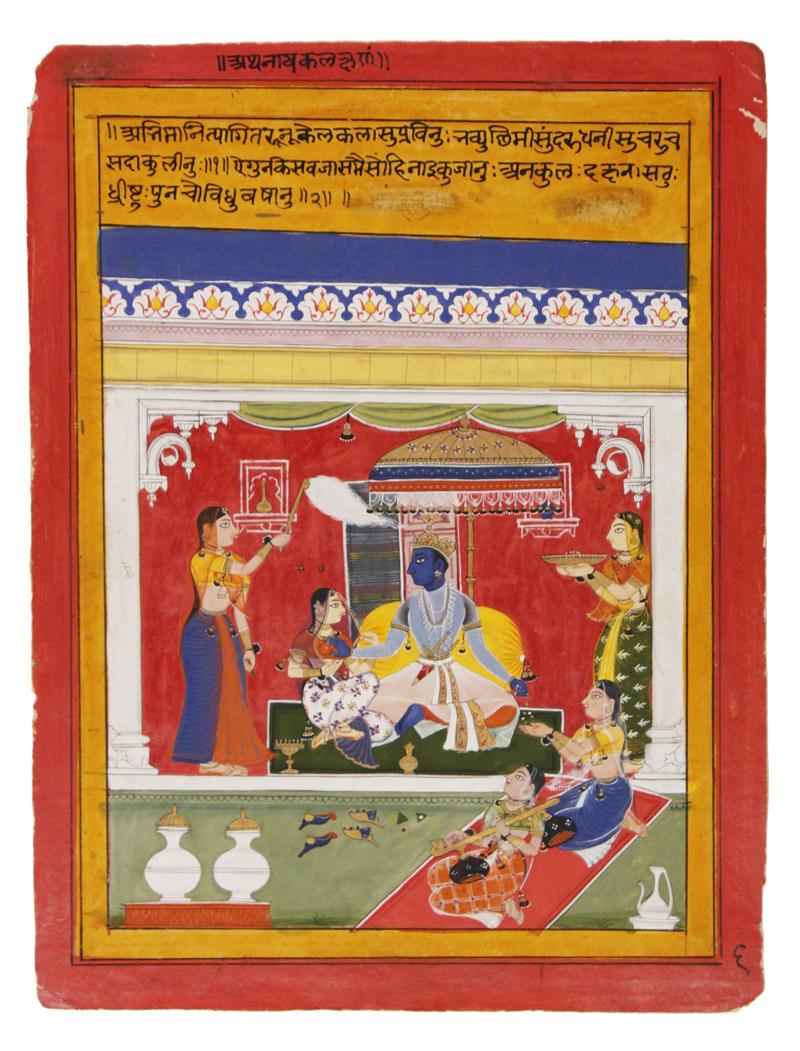 ॥अथनायकलछनं॥
॥अभिमानित्यागितरूनूकेलकलासुप्रविनु: भव्युछिमीसुंदरुधनीसुचरुच
सदाकुलीनु:॥१॥ एगुनकेसवजासंमैसोहिनाइकुजानु: अनकुल: दछन: सठु:
ध्रीष्टु: पुनचौविधुबषानु॥२॥ ॥
६